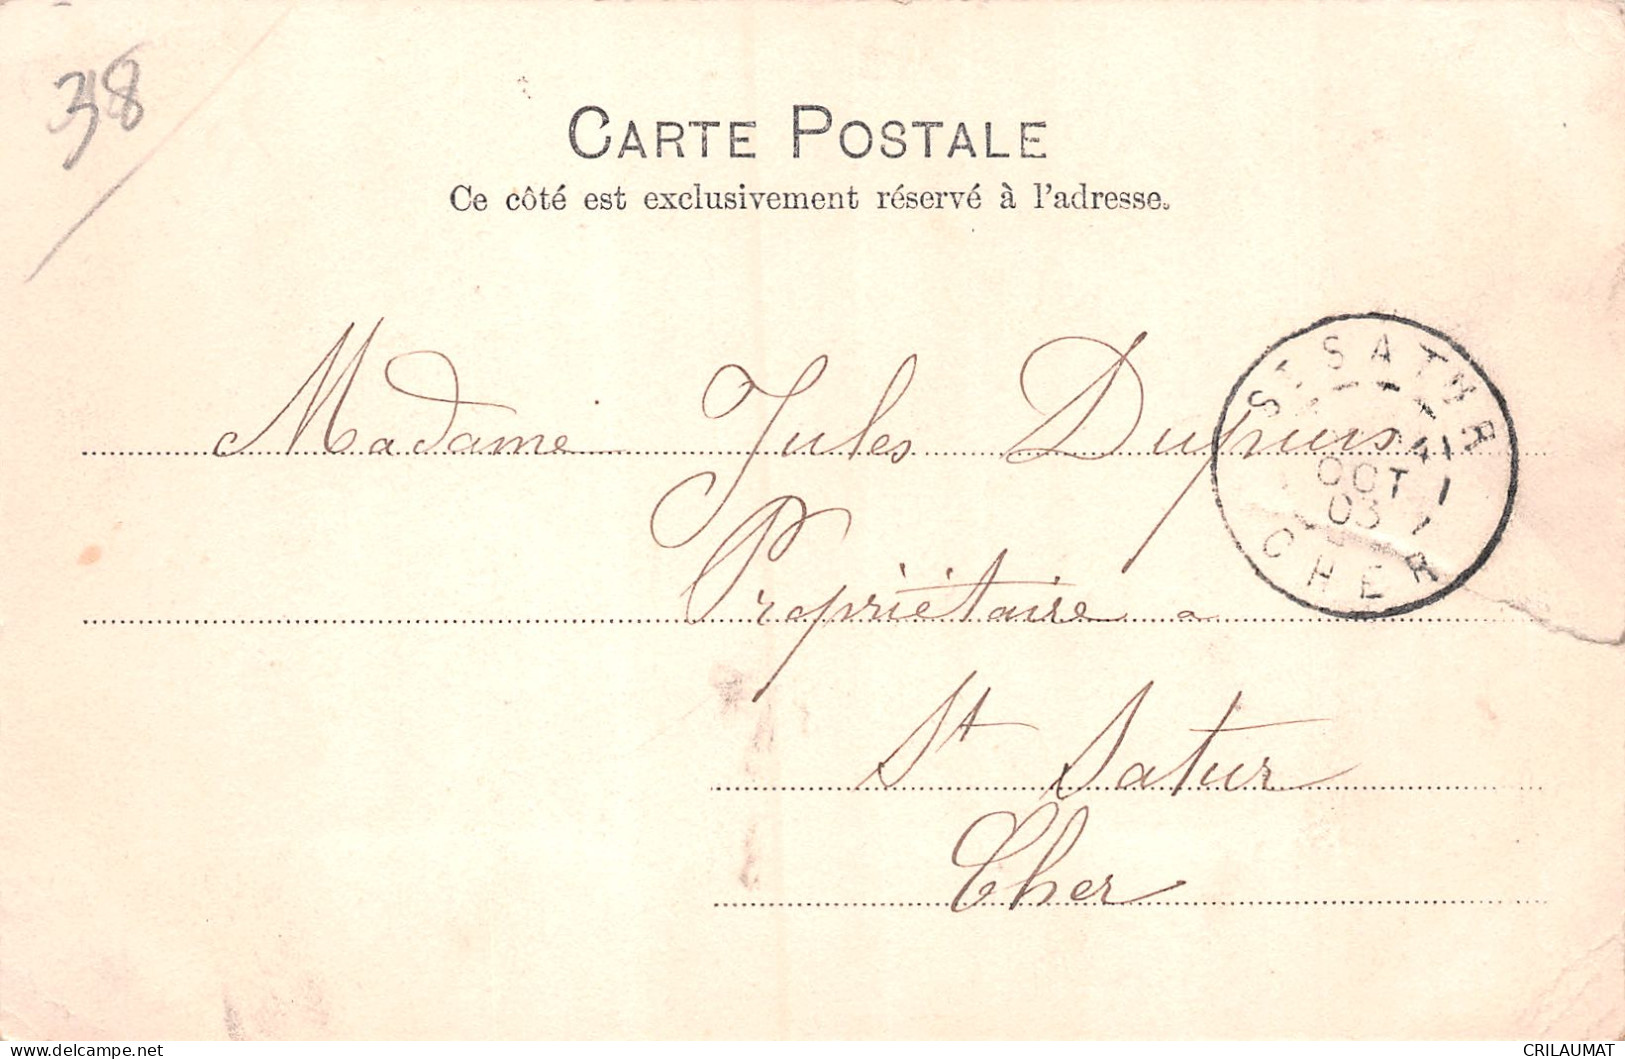 38
CARTE POSTALE
Ce côté est exclusivement réservé à l'adresse.
Madame Jules Dupuis
Propriétaire a
St Satur
Cher
ST SATUR
OCT
03
CHER
www.delcampe.net
CRILAUMAT